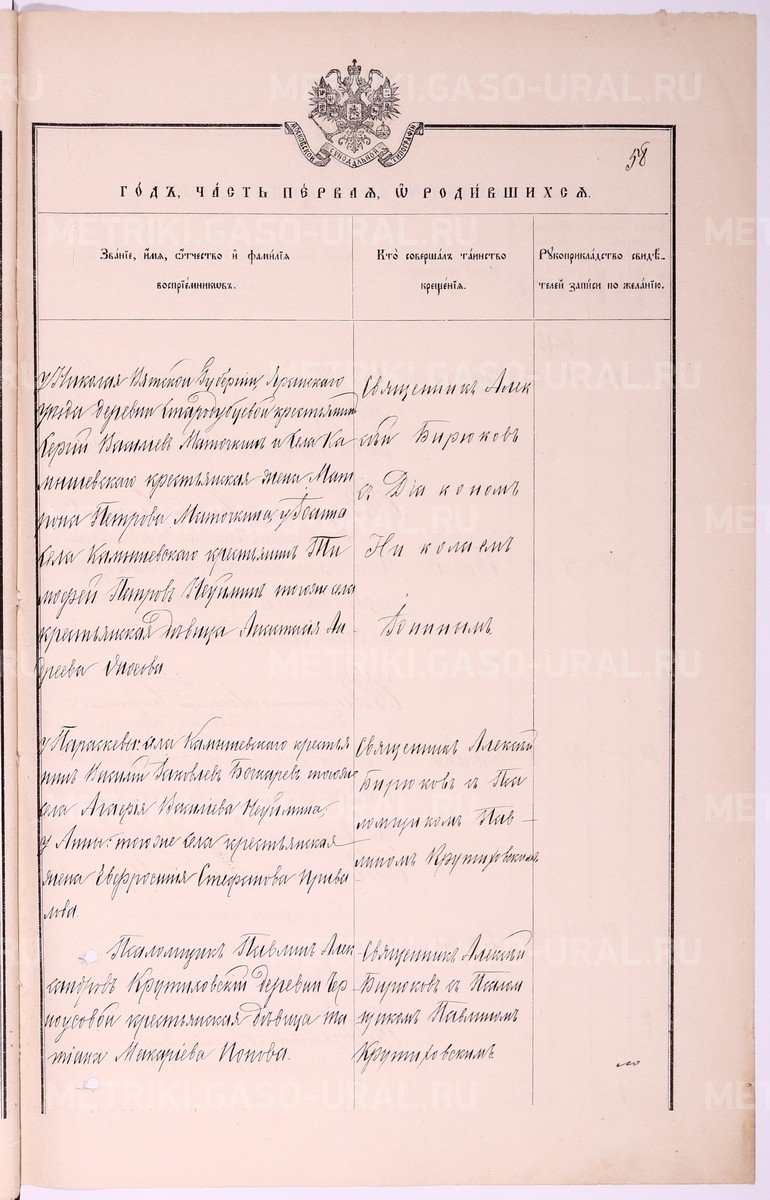 METRIKI.GASO-URAL.RU
МОСКОВСКОЙ СѴНОДАЛЬНОЙ ТИПОГРАФІИ
58
ГО́ДЪ, ЧА́СТЬ ПЕ́РВАЯ, Ѡ РОДИ́ВШИХСЯ.
Зва́ніе, и́мя, ѻ́тчество и҆ фами́лія
воспріе́мниковъ.
Кто̀ соверша́лъ та́инство
креще́нія.
Рукоприкла́дство свидѣ́-
телей за́писи по жела́нію.
у Николая Вятской Губерніи, Яранскаго
уѣзда деревни Стародубцевой крестьянинъ
Сергій Василіевъ Маточкинъ и села Ка-
мышевскаго крестьянская жена Мат
рона Петрова Маточкина, у Іоанна
села Камышевскаго крестьянинъ Ти-
мофей Петровъ Неуйминъ тогоже села
крестьянская дѣвица Анастасія Ан-
дреева
Священникъ Алек
сѣй Бирюковъ
съ Діакономъ
Николаемъ
у Параскевы: села Камышевскаго крестья
нинъ Василій Іаковлевъ Бочкаревъ тогоже
села Агафія Василіева Неуймина,
у Анны: тогоже села крестьянская
жена Евфросинія Стефанова Прива
лова.
Священникъ Алексій
Бирюковъ съ Пса
ломщикомъ Пав-
линомъ Крутиховскимъ
Псаломщикъ Павлинъ Алек
сандровъ Крутиховскій деревни Чер-
ноусовой крестьянская дѣвица Та
тіана Макаріева Попова.
Священникъ Алексій
Бирюковъ съ Псалом
щикомъ Павлиномъ
Крутиховскимъ